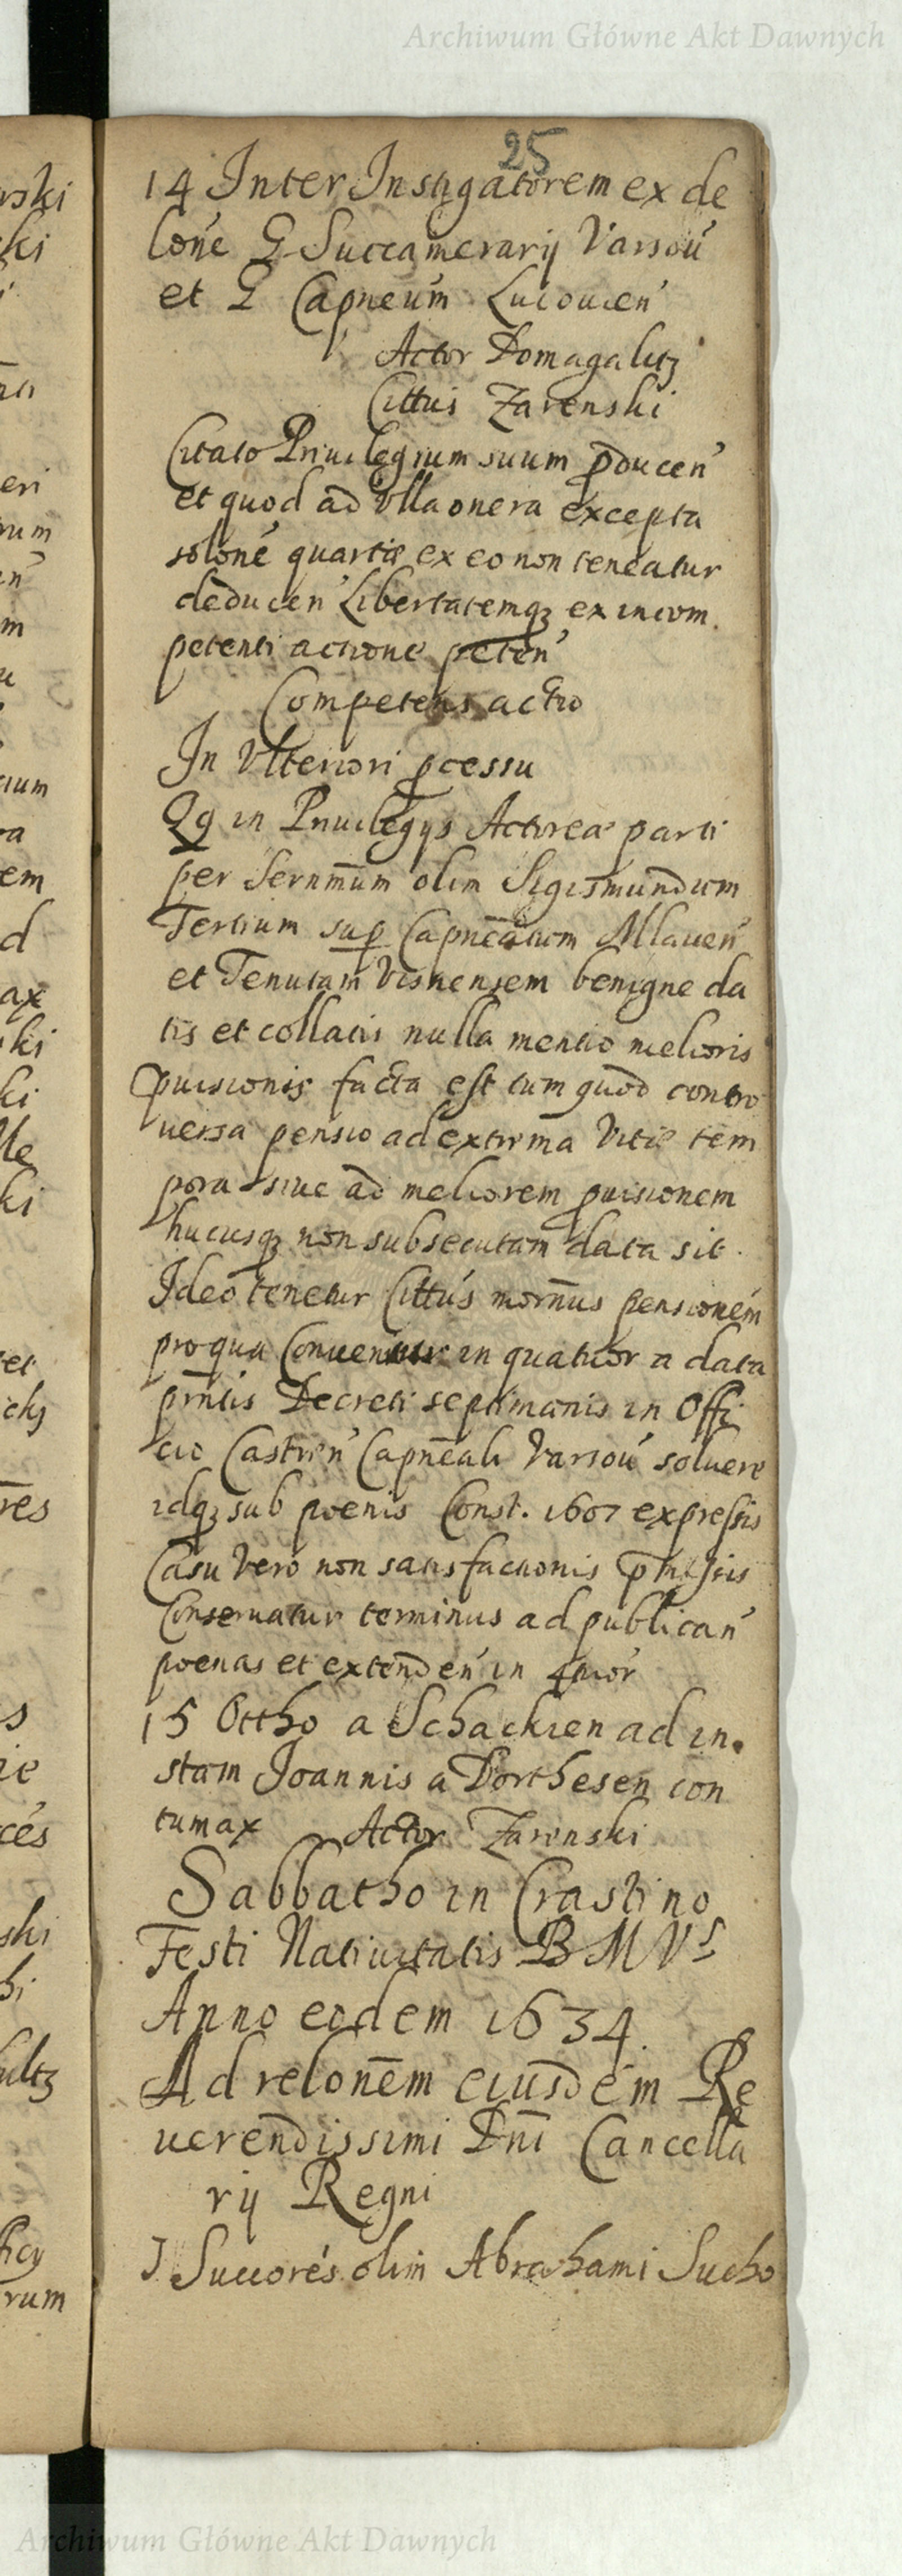 Archiwum Główne Akt Dawnych
25
14 Inter Instigatorem ex de
lone G Succamerarij Varsov
et G Capneum Lucovien
Actor Domagalitz
Cittus Zarenski
Citato Privilegium suum producen
et quod ad ulla onera excepta
solone quartæ ex eo non teneatur
deducen Libertatemq ex incom
petenti actione peten
Competens actio
In Ulteriori pcessu
Qg in Privilegijs Actoreæ parti
per Sernmum olim Sigismundum
Tertium sup Capneatum Mlaven
et Tenutam Visnensem benigne da
tis et collatis nulla mentio melioris
pvisionis facta est tum quod contro
versa pensio ad extrema Vitæ tem
pora sive ad meliorem pvisionem
hucusq non subsecutam data sit
Ideo tenetur Cittus mornus pensionem
pro qua Convenitur in quatuor a data
pntis Decreti septimanis in Offi
cio Castren Capneali Varsov solvere
idq sub poenis Const. 1607 expressis
Casu Vero non satisfactionis pmissis
Conservatur terminus ad publican
poenas et extenden in 4nior
15 Ottho a Schackien ad in
stam Joannis a Dorthesen con
tumax Actor Zarenski
Sabbatho in Crastino
Festi Nativitatis B M Vs
Anno eodem 1634
Ad relonem eiusdem Re
verendissimi Dni Cancella
rij Regni
1 Succores olim Abrahami Sucho
Archiwum Główne Akt Dawnych